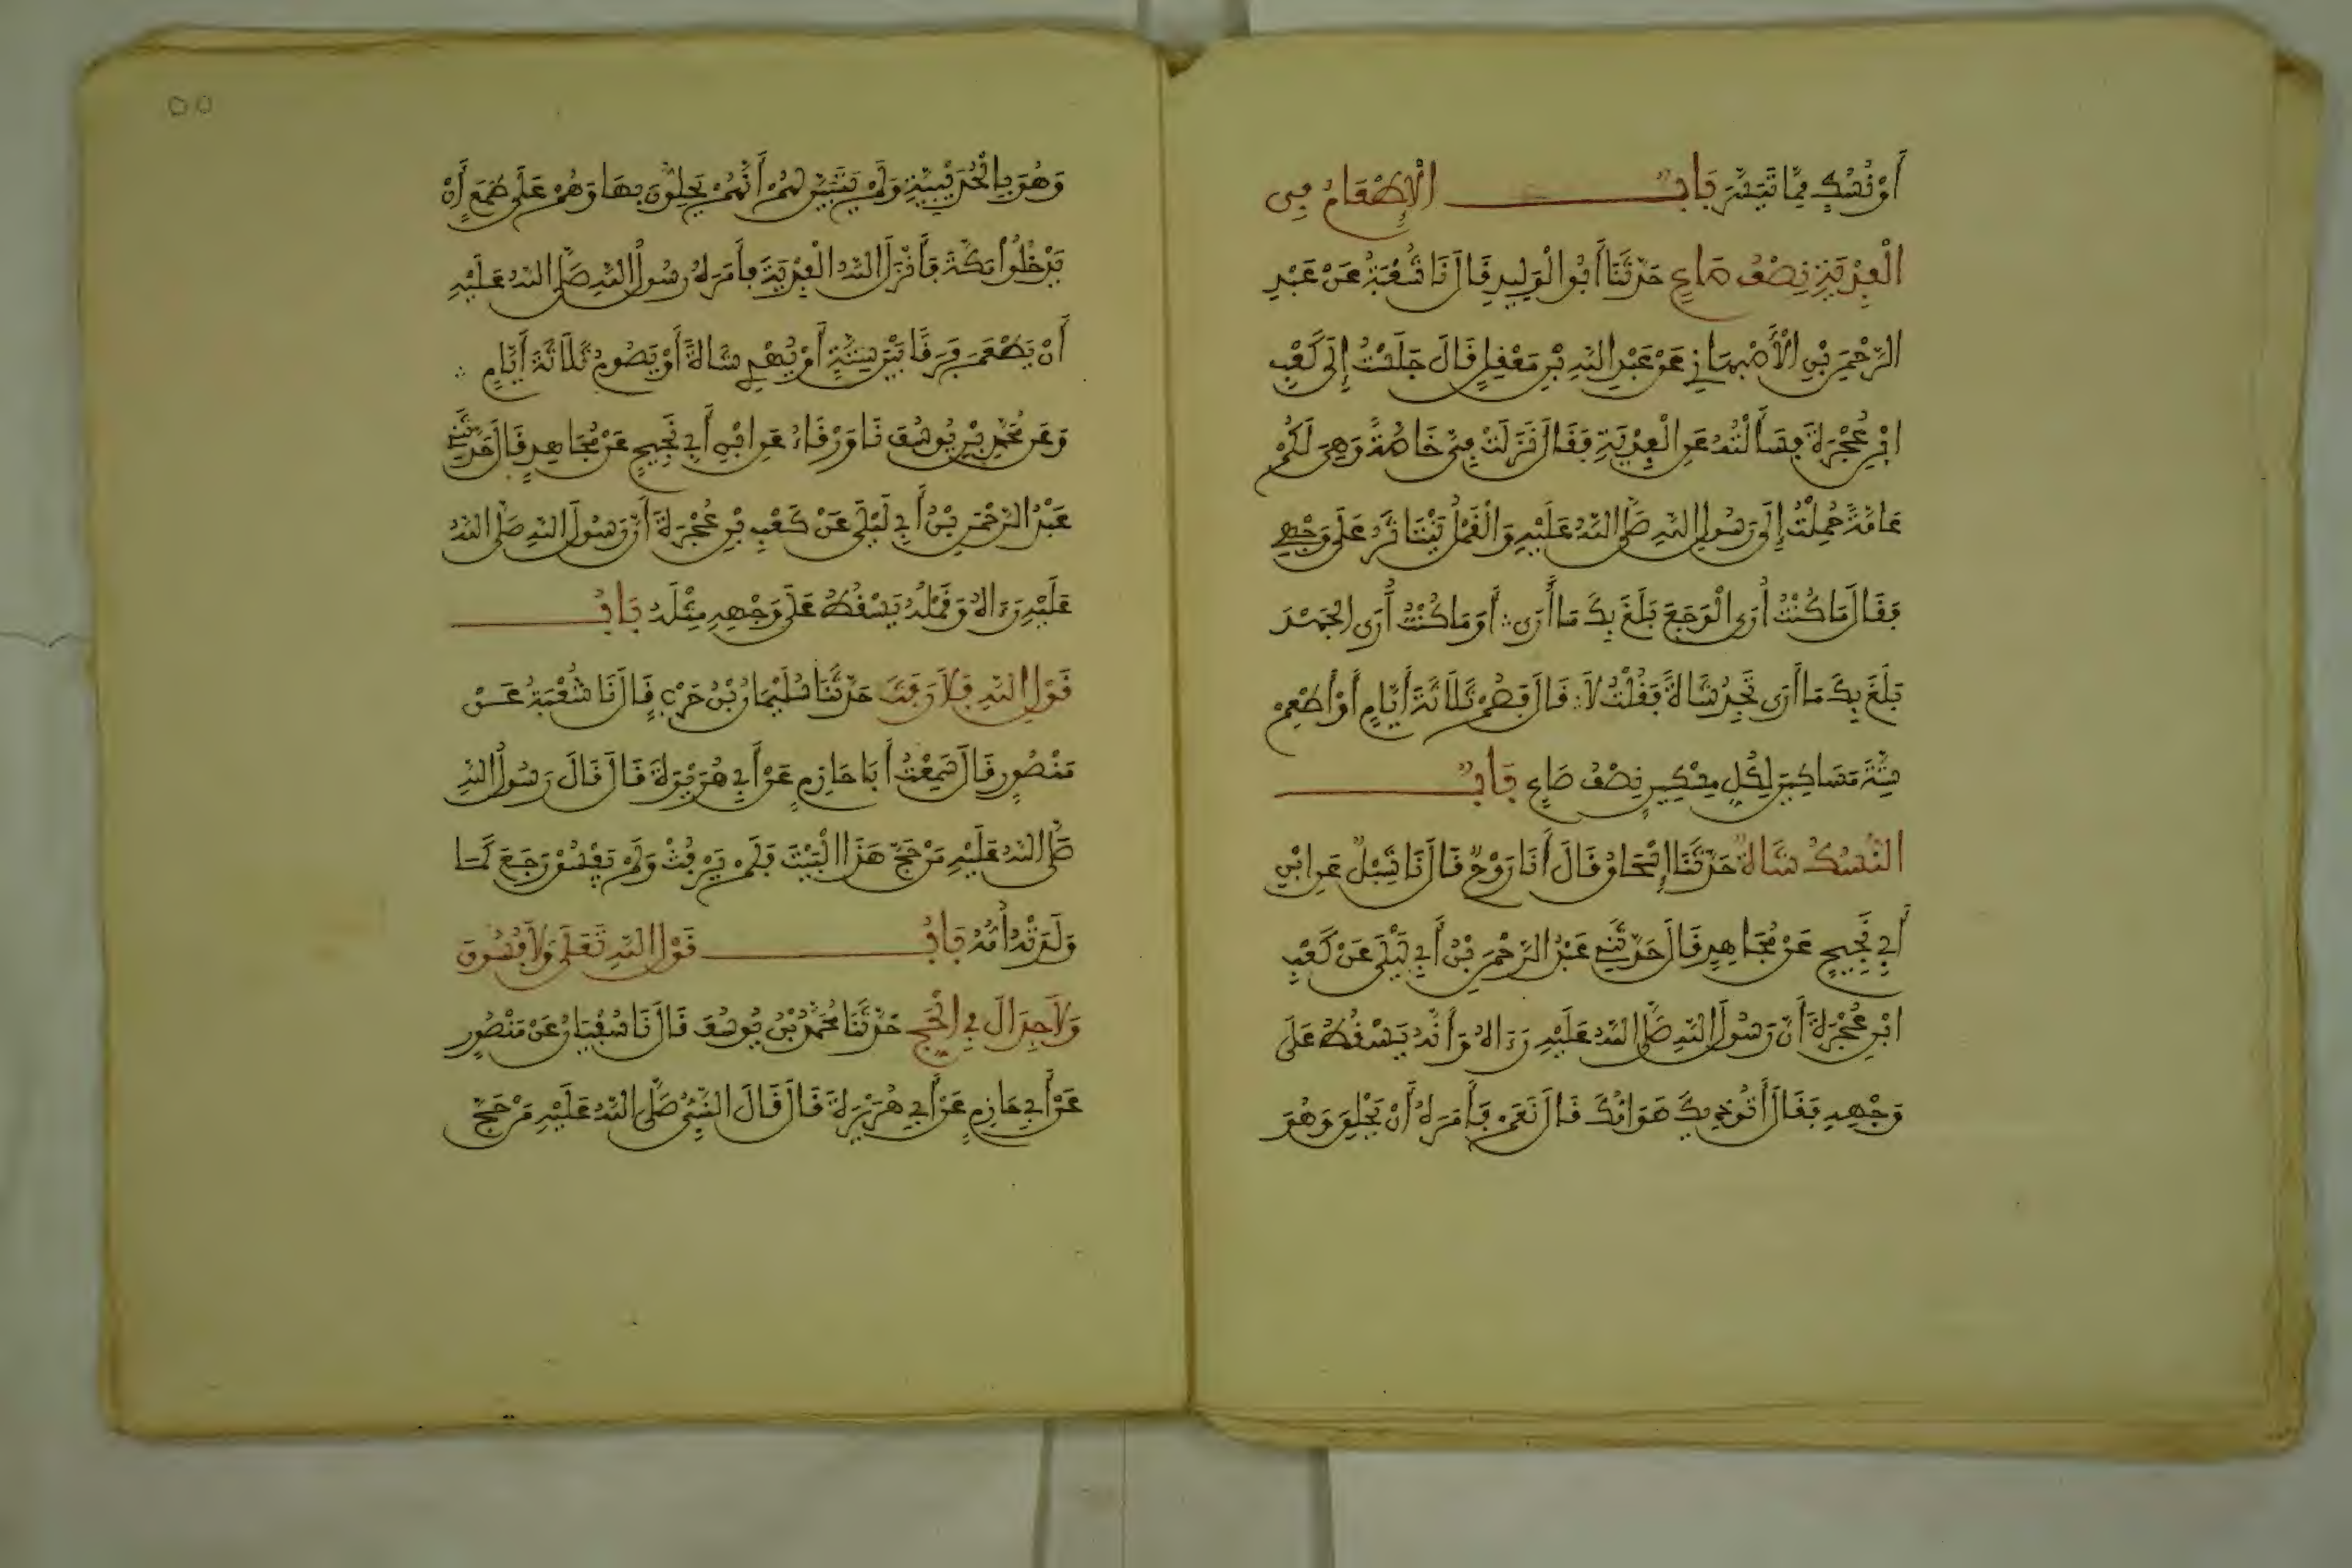 أَوْ نُسُكٍ مِمَّا تَيَسَّرَ بَابٌ الْإِطْعَامُ فِي
الْفِدْيَةِ نِصْفُ صَاعٍ حَدَّثَنَا أَبُو الْوَلِيدِ قَالَ نَا شُعْبَةُ عَنْ عَبْدِ
الرَّحْمَنِ بْنِ الْأَصْبِهَانِيِّ عَنْ عَبْدِ اللَّهِ بْنِ مَعْقِلٍ قَالَ جَلَسْتُ إِلَى كَعْبِ
ابْنِ عُجْرَةَ فَسَأَلْتُهُ عَنِ الْفِدْيَةِ فَقَالَ نَزَلَتْ فِيَّ خَاصَّةً وَهِيَ لَكُمْ
عَامَّةً حُمِلْتُ إِلَى رَسُولِ اللَّهِ صَلَّى اللَّهُ عَلَيْهِ وَالْقَمْلُ يَتَنَاثَرُ عَلَى وَجْهِي
فَقَالَ مَا كُنْتُ أُرَى الْوَجَعَ بَلَغَ بِكَ مَا أَرَى ∴ أَوْ مَا كُنْتُ أُرَى الْجَهْدَ
بَلَغَ بِكَ مَا أَرَى تَجِدُ شَاةً فَقُلْتُ لَا ∴ قَالَ فَصُمْ ثَلَاثَةَ أَيَّامٍ أَوْ أَطْعِمْ
سِتَّةَ مَسَاكِينَ لِكُلِّ مِسْكِينٍ نِصْفُ صَاعٍ بَابٌ
النُّسُكُ شَاةٌ حَدَّثَنَا إِسْحَاقُ قَالَ أَنَا رَوْحٌ قَالَ نَا شِبْلٌ عَنِ ابْنِ
أَبِي نَجِيحٍ عَنْ مُجَاهِدٍ قَالَ حَدَّثَنِي عَبْدُ الرَّحْمَنِ بْنُ أَبِي لَيْلَى عَنْ كَعْبِ
ابْنِ عُجْرَةَ أَنَّ رَسُولَ اللَّهِ صَلَّى اللَّهُ عَلَيْهِ رَءَاهُ وَأَنَّهُ يَسْقُطُ عَلَى
وَجْهِهِ فَقَالَ أَتُوذِيكَ هَوَامُّكَ قَالَ نَعَمْ فَأَمَرَهُ أَنْ يَحْلِقَ وَهُوَ
٥٥
وَهُوَ بِالْحُدَيْبِيَةِ وَلَمْ يَتَبَيَّنْ لَهُمْ أَنَّهُمْ يَحِلُّونَ بِهَا وَهُمْ عَلَى طَمَعٍ أَنْ
يَدْخُلُوا مَكَّةَ فَأَنْزَلَ اللَّهُ الْفِدْيَةَ فَأَمَرَهُ رَسُولُ اللَّهِ صَلَّى اللَّهُ عَلَيْهِ
أَنْ يُطْعِمَ فَرَقًا بَيْنَ سِتَّةٍ أَوْ يُهْدِيَ شَاةً أَوْ يَصُومَ ثَلَاثَةَ أَيَّامٍ ∴
وَعَنْ مُحَمَّدِ بْنِ يُوسُفَ نَا وَرْقَاءُ عَنِ ابْنِ أَبِي نَجِيحٍ عَنْ مُجَاهِدٍ قَالَ حَدَّثَنِي
عَبْدُ الرَّحْمَنِ بْنُ أَبِي لَيْلَى عَنْ كَعْبِ بْنِ عُجْرَةَ أَنَّ رَسُولَ اللَّهِ صَلَّى اللَّهُ
عَلَيْهِ رَءَاهُ وَقَمْلُهُ يَسْقُطُ عَلَى وَجْهِهِ مِثْلَهُ بَابُ
قَوْلِ اللَّهِ فَلَا رَفَثَ حَدَّثَنَا سُلَيْمَانُ بْنُ حَرْبٍ قَالَ نَا شُعْبَةُ عَنْ
مَنْصُورٍ قَالَ سَمِعْتُ أَبَا حَازِمٍ عَنْ أَبِي هُرَيْرَةَ قَالَ قَالَ رَسُولُ اللَّهِ
صَلَّى اللَّهُ عَلَيْهِ مَنْ حَجَّ هَذَا الْبَيْتَ فَلَمْ يَرْفُثْ وَلَمْ يَفْسُقْ رَجَعَ كَمَا
وَلَدَتْهُ أُمُّهُ بَابُ قَوْلِ اللَّهِ تَعَلَى وَلَا فُسُوقَ
وَلَا جِدَالَ فِي الْحَجِّ حَدَّثَنَا مُحَمَّدُ بْنُ يُوسُفَ قَالَ نَا سُفْيَانُ عَنْ مَنْصُورٍ
عَنْ أَبِي حَازِمٍ عَنْ أَبِي هُرَيْرَةَ قَالَ قَالَ النَّبِيُّ صَلَّى اللَّهُ عَلَيْهِ مَنْ حَجَّ